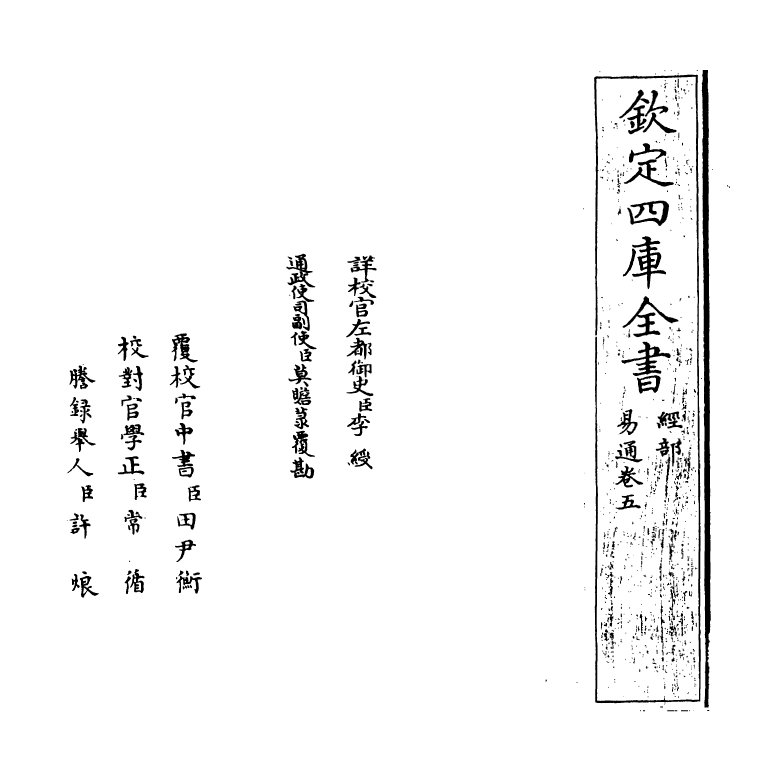 欽定四庫全書
經部
易通卷五
詳校官左都御史臣李綬
通政使司副使臣莫瞻菉覆勘
覆校官中書臣田尹衡
校對官學正臣常循
謄録舉人臣許烺